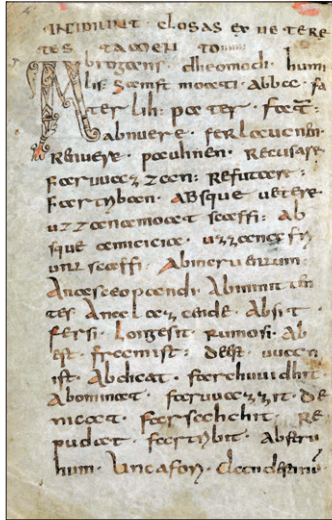 INCIPIUNT CLOSAS EX UETERE
TES TAMEN TO
Abrogans. dheomodi. humi
lis: samft moati. Abba. fa
ter lih: pater. fater.
Abnuere. ferlaucnen.
Renuere. pauhnen. Recusare
Faruuazzan: Refutare:
Fartriban. Absque uetere.
uzzana moat scaffi: Ab
sque amiciciae. uzzana fri
unt scaffi.
Ana sceopandi.
cende. Absit.
fersi. Longe sit. rumo si. Ab
est. fram ist: Deest. uuan
ist. Abdicat. farchuuidhit
Abominat. faruuazzit. De
farsachit. Re
pudiat. fartribit. Abstru
Uncafori. Clandestinū